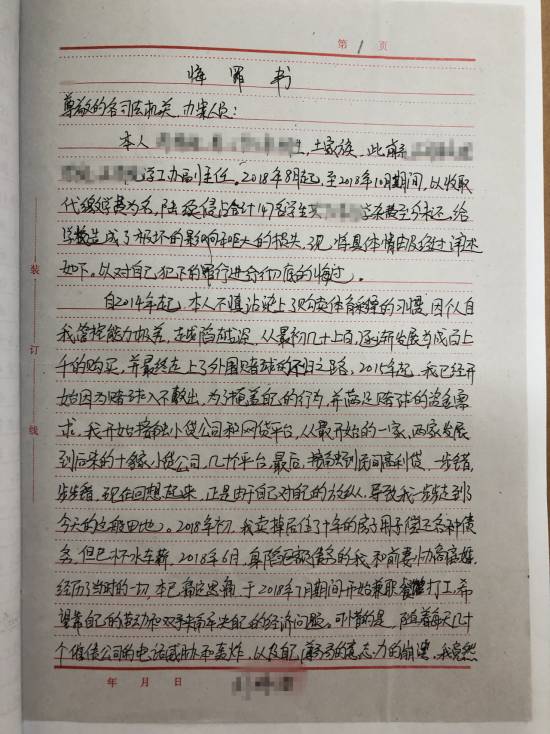 第 1 页
悔罪书
尊敬的各司法机关、办案人员：
本人 ，土家族，此前系
学工办副主任。2018年8月起，至2018年10月期间，以收取
代缴学费为名，陆续侵占合计147名学生 学费至今未还，给
学校造成了极坏的影响和巨大的损失，现将具体情由及经过详述
如下。以对自己犯下的罪行进行彻底的悔过。
自2014年起，本人不慎沾染上了购买体育彩票的习惯，因个自
我管控能力极差，越陷越深，从最初几十上百，逐渐发展为成百上
千的购买，并最终走上了外围赌球的不归之路，2015年起，我已经开
始因为赌球入不敷出，为了掩盖自己的行为，并满足赌球的资金需
求，我开始接触小贷公司和网贷平台，从最开始的一家、两家发展
到后来的十余家小贷公司，几十个平台，最后，接触到民间高利贷，一步错，
步步错，现在回想起来，正是由于自己对自己的放纵，导致我一步步走到了
今天的这般田地。2018年初，我卖掉居住了十年的房子用于偿还各种债
务，但已杯水车薪，2018年6月，身陷巨额债务的我，和前妻协商离婚，
经历了当时的一切，本已痛定思痛，于2018年7月期间开始兼职 打工，希
望靠自己的劳动和双手来解决自己的经济问题。可惜的是，随着每天几十
个催债公司的电话威胁和轰炸，以及自己薄弱的意志力的崩溃，我竟然
装
订
线
年 月 日